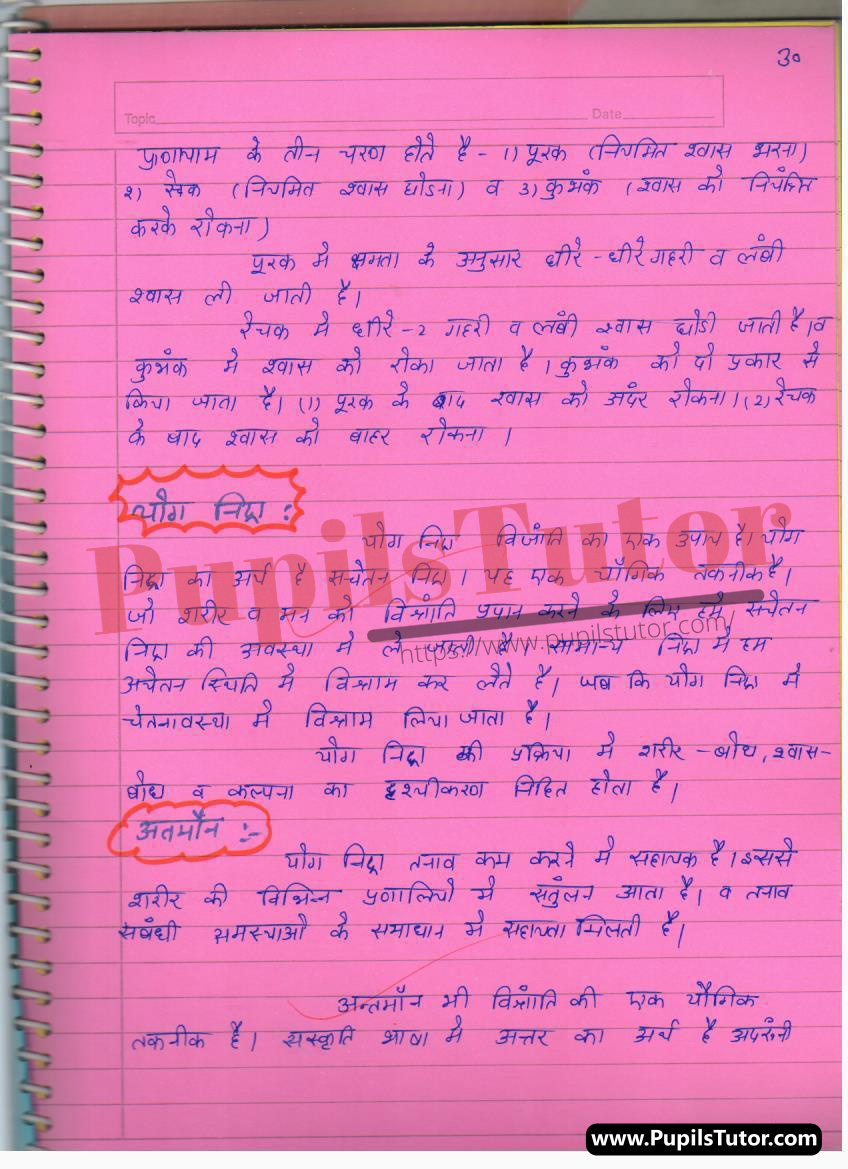 30
Topic
Date
प्राणायाम के तीन चरण होते है - 1) पूरक (नियमित श्वास भरना)
2) रेचक (नियमित श्वास छोडना) व 3) कुभंक (श्वास को नियंत्रित
करके रोकना)
पूरक मे क्षमता के अनुसार धीरे - धीरे गहरी व लंबी
श्वास ली जाती है।
रेचक मे धीरे-2 गहरी व लंबी श्वास छोडी जाती है। व
कुभंक मे श्वास को रोका जाता है। कुभंक को दो प्रकार से
किया जाता है। (1) पूरक के बाद श्वास को अदंर रोकना। (2) रेचक
के बाद श्वास को बाहर रोकना ।
योग निद्रा :
योग निद्रा विश्रांति का एक उपाय है। योग
निद्रा का अर्थ है सचेतन निद्रा। यह एक यौगिक तकनीक है।
जो शरीर व मन को विश्रांति प्रदान करने के लिए हमे सचेतन
निद्रा की अवस्था मे ले जाती है। सामान्य निद्रा मे हम
अचेतन स्थिति मे विश्राम कर लेते है। जब कि योग निद्रा मे
चेतनावस्था मे विश्राम लिया जाता है।
योग निद्रा की प्रक्रिया मे शरीर - बोध, श्वास-
बोध व कल्पना का दृश्यीकरण निहित होता है।
अतमौन :-
योग निद्रा तनाव कम करने मे सहायक है। इससे
शरीर की विभिन्न प्रणालियो मे सतुंलन आता है। व तनाव
सबंधी समस्याओ के समाधान मे सहायता मिलती है।
अन्तमौन भी विश्रांति की एक यौगिक
तकनीक है। संस्कृति भाषा मे अत्तर का अर्थ है अदरूंनी
PupilsTutor
https://www.pupilstutor.com/
www.PupilsTutor.com